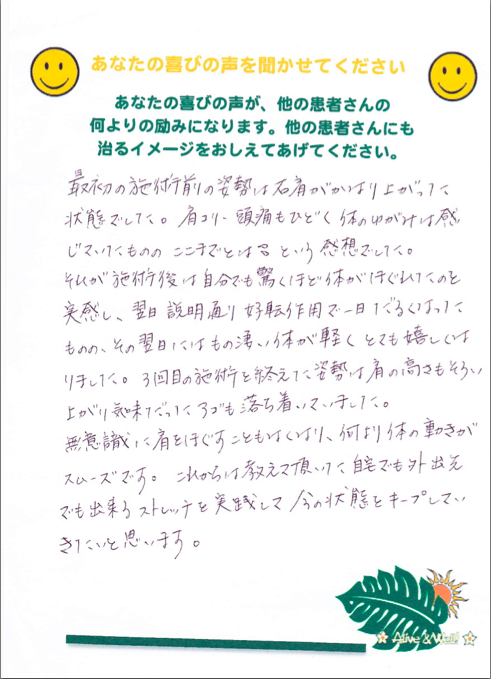 あなたの喜びの声を聞かせてください
あなたの喜びの声が、他の患者さんの
何よりの励みになります。他の患者さんにも
治るイメージをおしえてあげてください。
最初の施術前の姿勢は右肩がかなり上がった
状態でした。肩コリ・頭痛もひどく体のゆがみは感
じていたものの ここまでとは
という感想でした。
それが施術後は自分でも驚くほど体がほぐれたのを
実感し、翌日説明通り好転作用で一日だるくなった
ものの、その翌日にはもの凄い体が軽くとても嬉しくな
りました。3回目の施術を終えて姿勢は肩の高さもそろい
上がり気味だった
も落ち着いていました。
無意識に肩をほぐすこともなくなり、何より体の動きが
スムーズです。これからは教えて頂いた自宅でも外出先
でも出来るストレッチを実践して今の状態をキープしてい
きたいと思います。
Alive & Well!